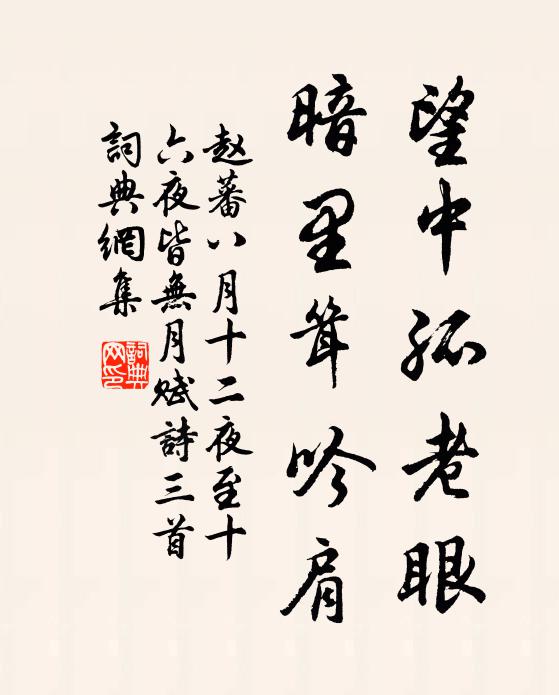 望中孤老眼
暗里耸吟肩
赵蕃八月十二夜至十
六夜皆無月赋詩三首
詞典網集
詞典网印